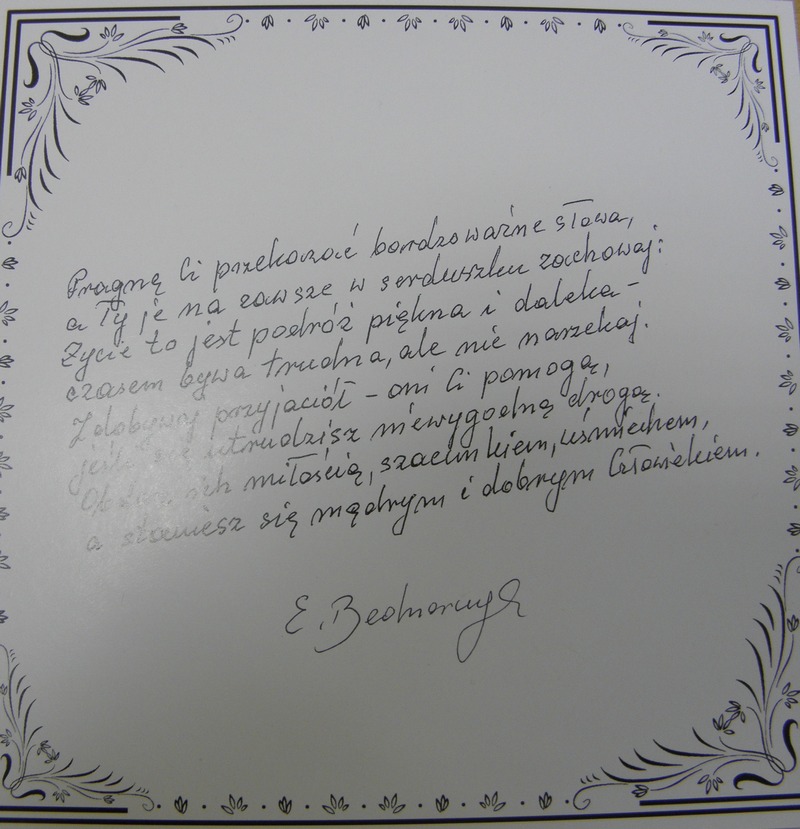 Pragnę Ci przekazać bardzo ważne słowa,
a Ty je na zawsze w serduszku zachowaj:
Życie to jest podróż piękna i daleka -
czasem bywa trudna, ale nie narzekaj.
Zdobywaj przyjaciół - oni Ci pomogą,
jeśli się utrudzisz niewygodną drogą.
ich miłością, szacunkiem, uśmiechem,
a staniesz się mądrym i dobrym Człowiekiem.
E. Bednarczyk